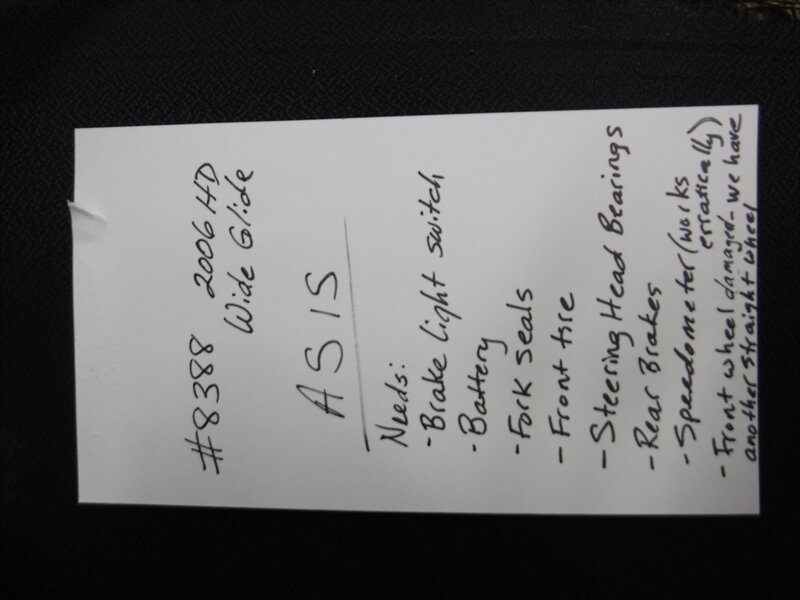 #8388 2006 HD
Wide Glide
ASIS
Needs:
- Brake light switch
- Battery
- Fork seals
- Front tire
- Steering Head Bearings
- Rear Brakes
- Speedometer (works
erratically)
- Front wheel damaged - we have
another straight wheel